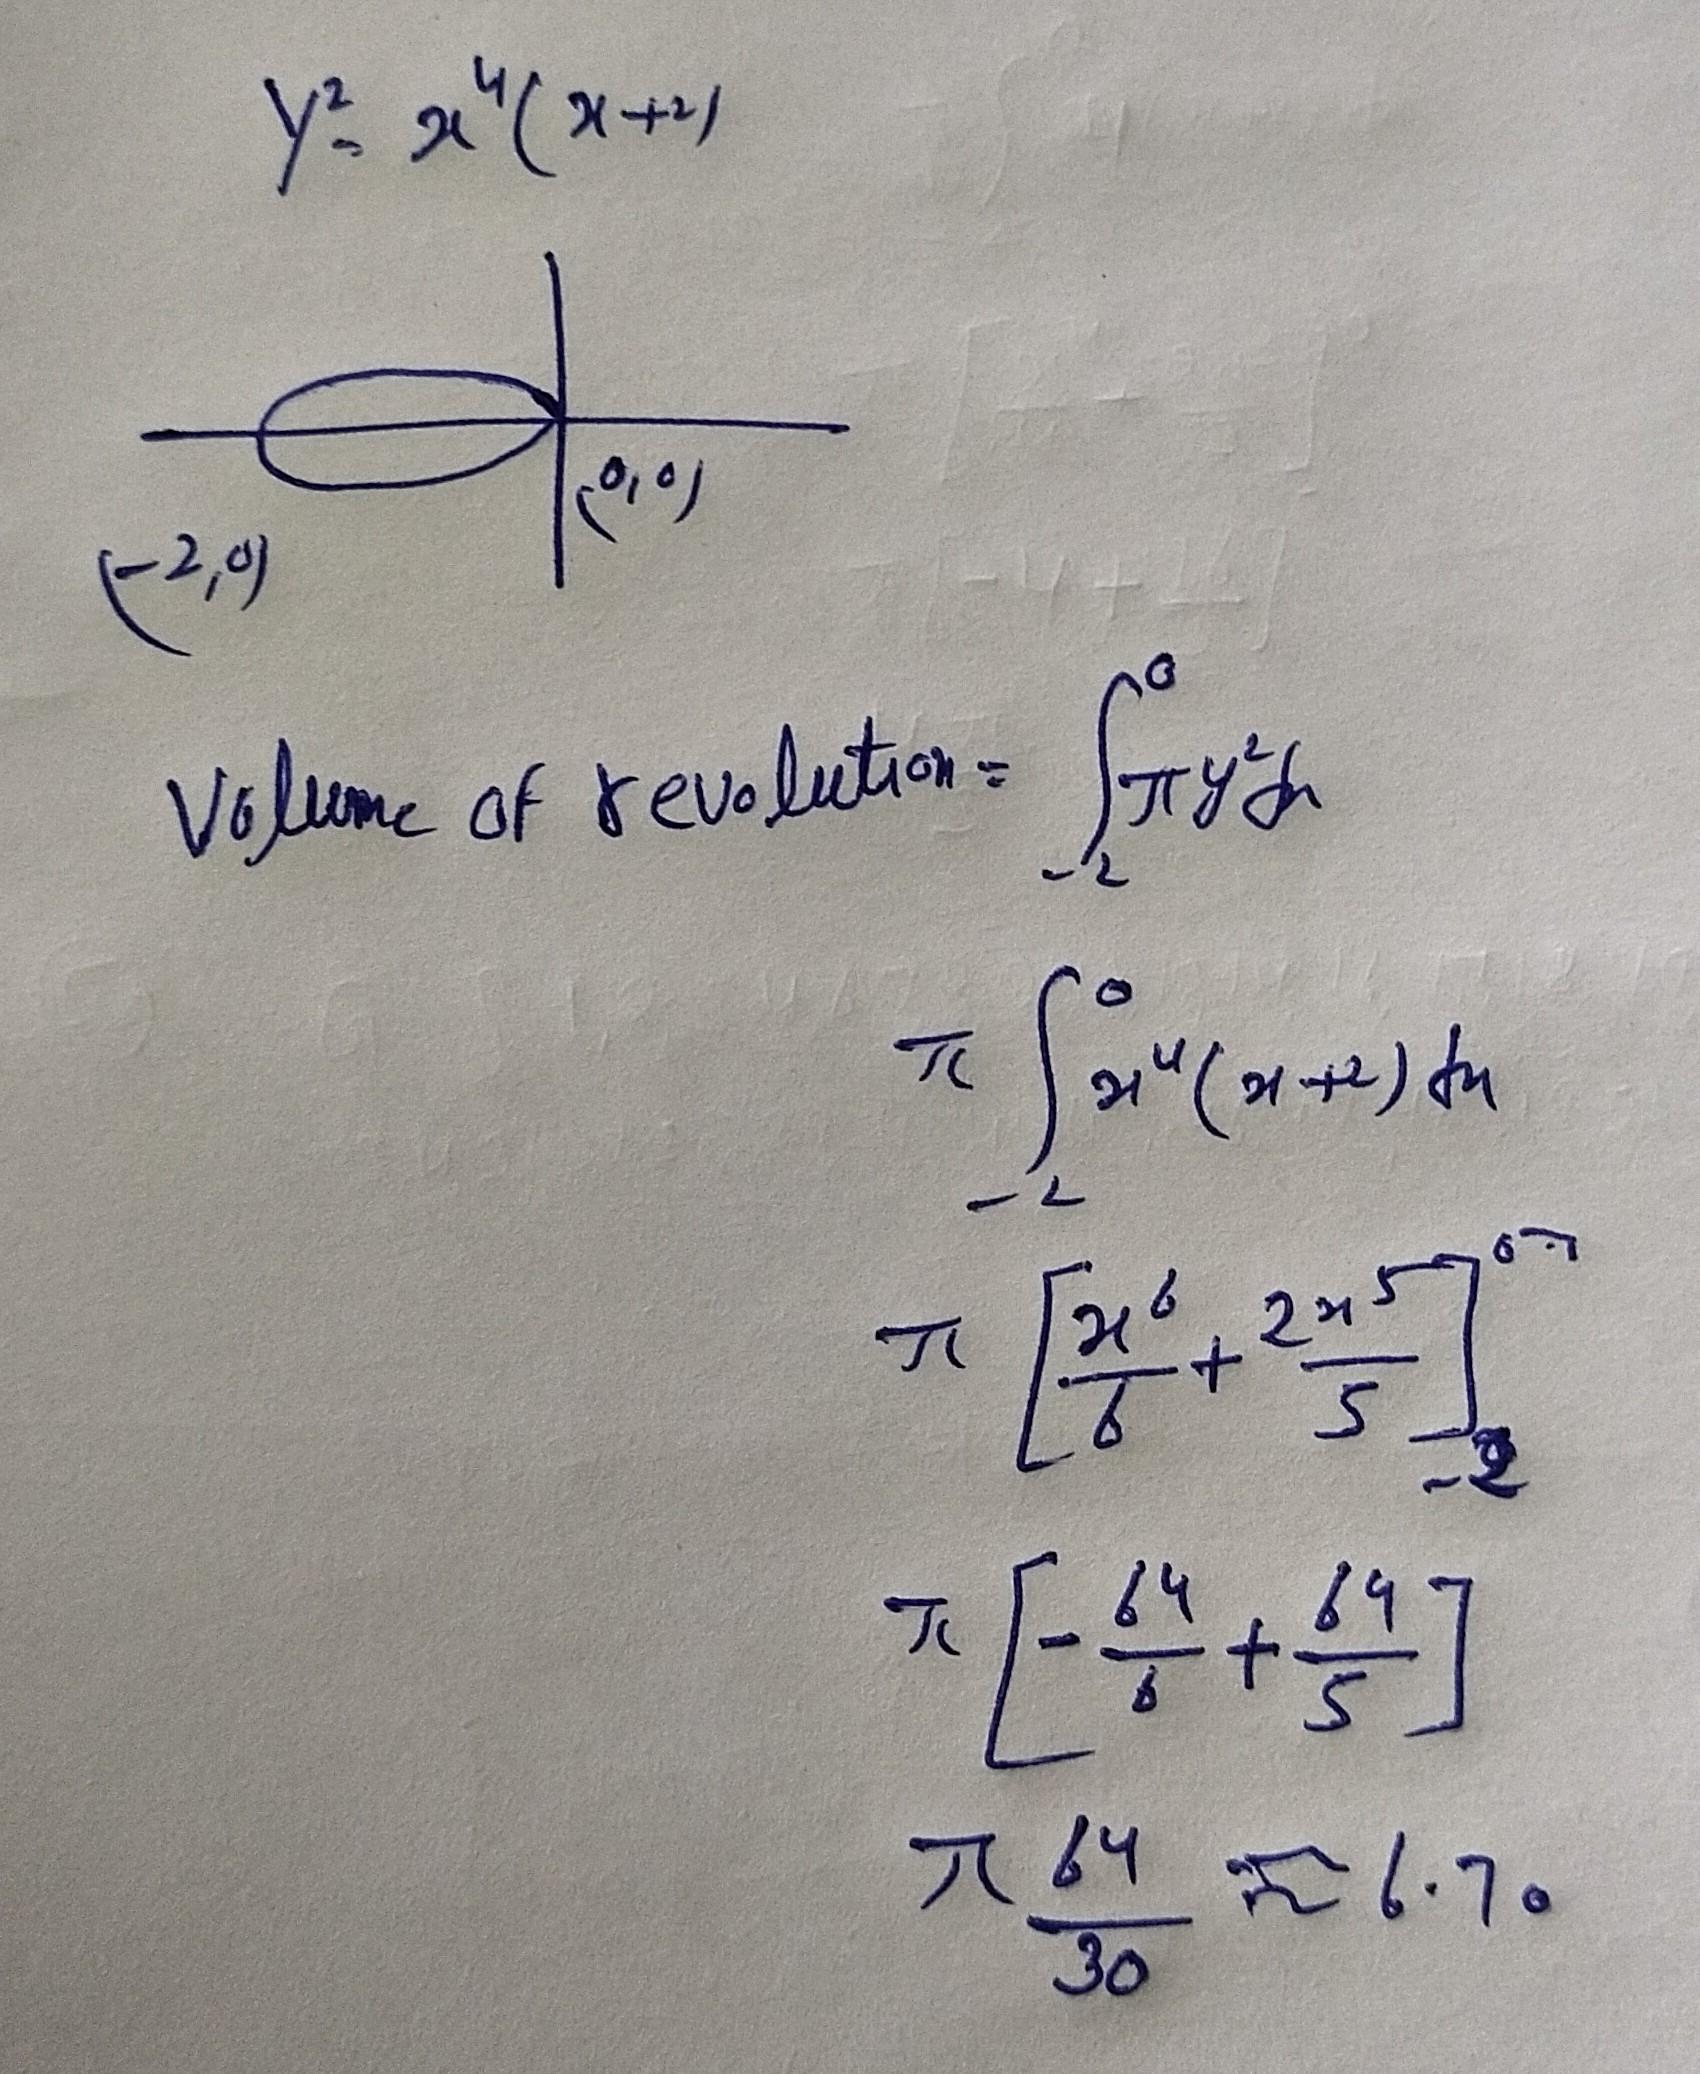 y² = x⁴(x+2)
(0,0)
(-2,0)
Volume of revolution = ∫₋₂⁰ πy²dx
π ∫₋₂⁰ x⁴(x+2)dx
π [x⁶/6 + 2x⁵/5]₋₂⁰
π [-64/6 + 64/5]
π 64/30 ≈ 6.70